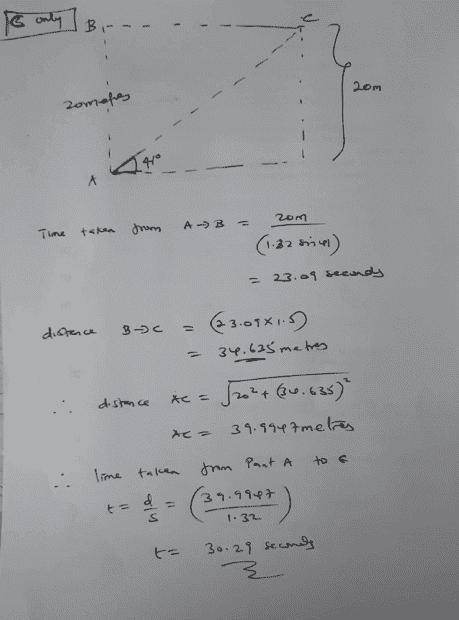 G only
B C
20m
20metres
41°
A
Time taken from A → B = 20m / (1.32 sin 41)
= 23.09 seconds
distance B → C = (23.09 × 1.5)
= 34.635 metres
∴ distance AC = √20² + (34.635)²
AC = 39.9947 metres
∴ time taken from Point A to C
t = d/s = (39.9947 / 1.32)
t = 30.29 seconds